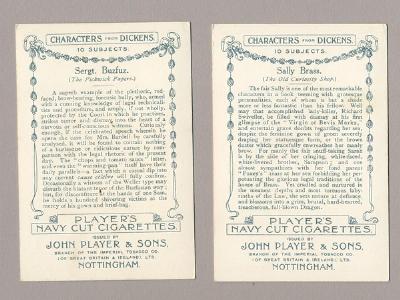 CHARACTERS FROM DICKENS.
10 SUBJECTS.
Sergt. Buzfuz.
(The Pickwick Papers.)
A superb example of the plethoric, red-
faced, brow-beating, forensic bully, who, armed
with a cunning knowledge of legal technicali-
ties and procedure, and amply, if not wholly,
protected by the Court in which he practises,
strikes terror and dismay into the heart of a
nervous or self-conscious witness. Curiously
enough, if the celebrated speech wherein he
opens the case for Mrs. Bardell be carefully
analysed, it will be found to contain nothing
of a burlesque or ridiculous nature by com-
parison with the legal rhetoric of the period.
The "chops and tomato sauce" letter,
and even the "warming-pan" itself have their
daily parallels—a fact which a casual dip into
any current cause célèbre will fully confirm.
Occasionally a witness of the Weller type may
disturb the blatant tenor of the Buzfuzian way;
but, for the moment, in the hands of one Sam,
he holds a hundred shivering victims at the
mercy of his gown and brief-bag.
PLAYER'S
NAVY CUT CIGARETTES.
ISSUED BY
JOHN PLAYER & SONS,
BRANCH OF THE IMPERIAL TOBACCO CO.
(OF GREAT BRITAIN & IRELAND), LTD.
NOTTINGHAM.
CHARACTERS FROM DICKENS.
10 SUBJECTS.
Sally Brass.
(The Old Curiosity Shop.)
The fair Sally is one of the most remarkable
characters in a book teeming with grotesque
personalities, each of whom is but a shade
or less fantastic than his fellow. Well
may that accomplished lady-killer, Richard
Swiveller, be filled with dismay at his first
glimpse of the "Virgin of Bevis Marks,"
and entertain grave doubts regarding her sex,
despite the feminine gown of green severely
draping her statuesque form, or the brown
gauze which gracefully enwreathes her manly
brow. For surely the fair snuff-taking Sarah
is by the side of her cringing, whiskered,
sister-browed brother, Sampson; and one
almost sympathises with her Papa, "old
Foxey's" mantle falling
petuating the glorious legal traditions of the
house of Brass. Yet cradled and nurtured in
the meanest depths and most tortuous laby-
rinths of the Law, she sets nature at defiance,
and blossoms into a grim, brutal, hard-hearted,
treacherous, full-blown Dragon.
PLAYER'S
NAVY CUT CIGARETTES.
ISSUED BY
JOHN PLAYER & SONS,
BRANCH OF THE IMPERIAL TOBACCO CO.
(OF GREAT BRITAIN & IRELAND), LTD.
NOTTINGHAM.